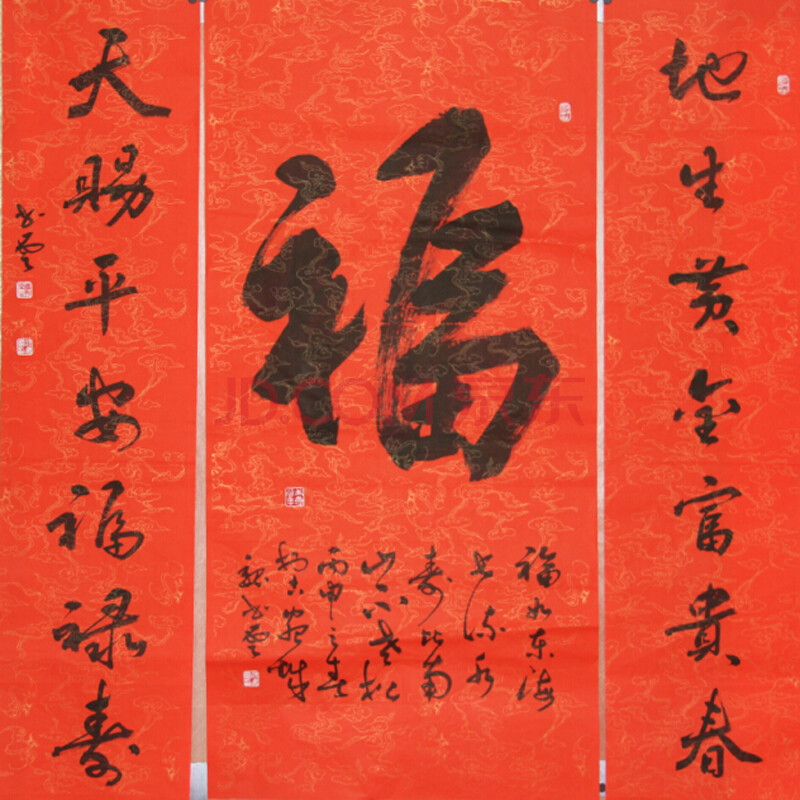 地生黄金富貴春
福
福如东海
长流水
寿比南
山不老松
丙申之春
天賜平安福禄寿
JD.COM 京东